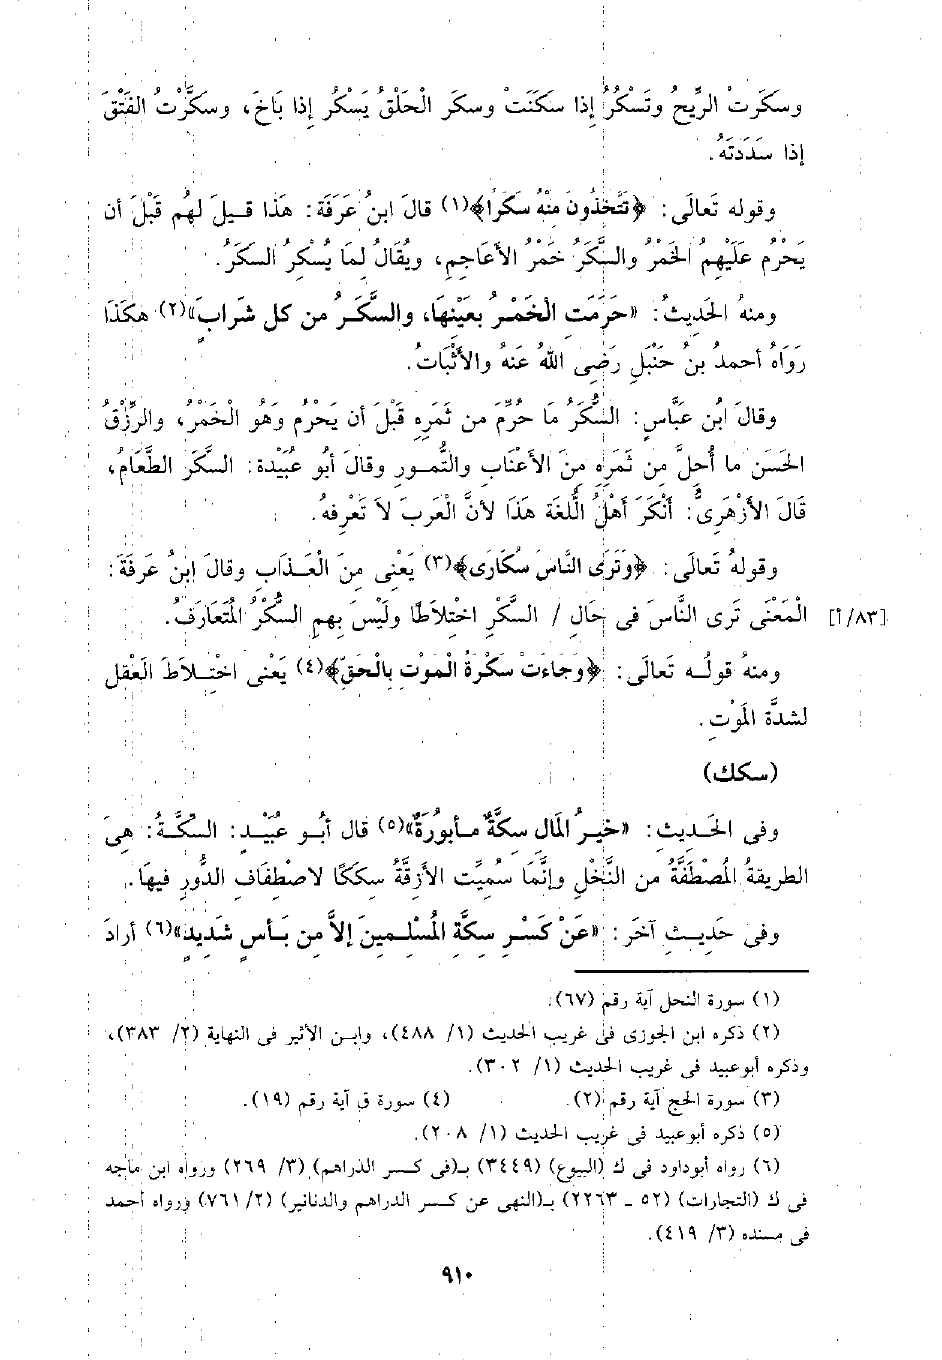 وسكَرتْ الرِّيحُ وتَسْكُرُ إذا سكَنَتْ وسكَر الْحَلْقُ يَسْكُر إذا بَاخَ، وسكَّرْتُ الفَتْقَ
إذا سَدَدتَهُ.
وقوله تَعالَى: ﴿تَتَّخذُونَ منْهُ سكَرًا﴾(١) قالَ ابنُ عَرَفَة: هَذا قيلَ لهُم قَبْلَ أن
يَحْرُم عَلَيْهِمُ الخَمْرُ والسَّكَرُ خَمْرُ الأعَاجِمِ، ويُقَالُ لمَا يُسْكِرُ السكَرُ.
ومنهُ الحَديثُ: «حَرَمَت الْخَمْرُ بعَيْنهَا، والسَّكَرُ من كل شَرابَ»(٢) هكَذَا
رَوَاهُ أحمدُ بنُ حَنْبَلٍ رَضِى اللهُ عَنهُ والأَثْبَاتُ.
وقالَ ابُن عَبَّاسٍ: السَّكَرُ مَا حُرِّمَ من ثَمَرِه قَبْلَ أن يَحْرُم وَهُو الْخَمْرُ، والرِّزْقُ
الحَسَن ما أُحلَّ مِن ثَمَرِه مِنَ الأعْنَابِ والتُّمور وقالَ أبُو عُبَيْدة: السَّكَر الطَّعَامُ،
قَالَ الأزْهَرِىُّ: أنْكَرَ أهْلُ اللُّغَة هَذَا لأنَّ الْعَربَ لاَ تَعْرِفهُ.
وقولهُ تَعالَى: ﴿وَتَرَى النَّاسَ سُكَارَى﴾(٣) يَعْنِى مِنَ الْعَذَابِ وقالَ ابنُ عَرفَةَ:
الْمَعْنَى تَرى النَّاسَ فى حَالِ / السَّكْرِ اختْلاَطًا ولَيْسَ بِهِم السُّكْرُ المُتَعَارفُ. [٨٣/أ]
ومنهُ قولُه تَعالَى: ﴿وجَاءَتْ سَكْرَةُ الْمَوْت بالْحَقِّ﴾(٤) يَعْنى اخْتلاَطَ العَقْل
لشدَّة المَوْتِ.
(سكك)
وفى الحَديث: «خَيرُ المَال سكَّةٌ مأبورَةٌ»(٥) قال أبُو عبُيَيْد: السِّكَّةُ: هِىَ
الطريقةُ المُصْطَفَّةُ من النَّخْلِ وإنَّمَا سُمِّيَت الأزقَّةُ سكَكًا لاصْطِفَاف الدُّورِ فيهَا.
وفى حَدِيثِ آخَر: «عَنْ كَسْرِ سِكَّةِ المُسْلِمينَ إلاَّ من بَأسٍ شَدِيد»(٦) أرادَ
(١) سورة النحل آية رقم (٦٧).
(٢) ذكره ابن الجوزى فى غريب الحديث (١/ ٤٨٨)، وابن الأثير فى النهاية (٢/ ٣٨٣)،
وذكره أبوعبيد فى غريب الحديث (١/ ٣٠٢).
(٣) سورة الحج آية رقم (٢). (٤) سورة ق آية رقم (١٩).
(٥) ذكره أبوعبيد فى غريب الحديث (١/ ٢٠٨).
(٦) رواه أبوداود فى ك (البيوع) (٣٤٤٩) بـ(فى كسر الدراهم) (٣/ ٢٦٩) ورواه ابن ماجه
فى ك (التجارات) (٥٢ ـ ٢٢٦٣) بـ(النهى عن كسر الدراهم والدنانير) (٢/ ٧٦١) ورواه أحمد
فى مسنده (٣/ ٤١٩).
٩١٠